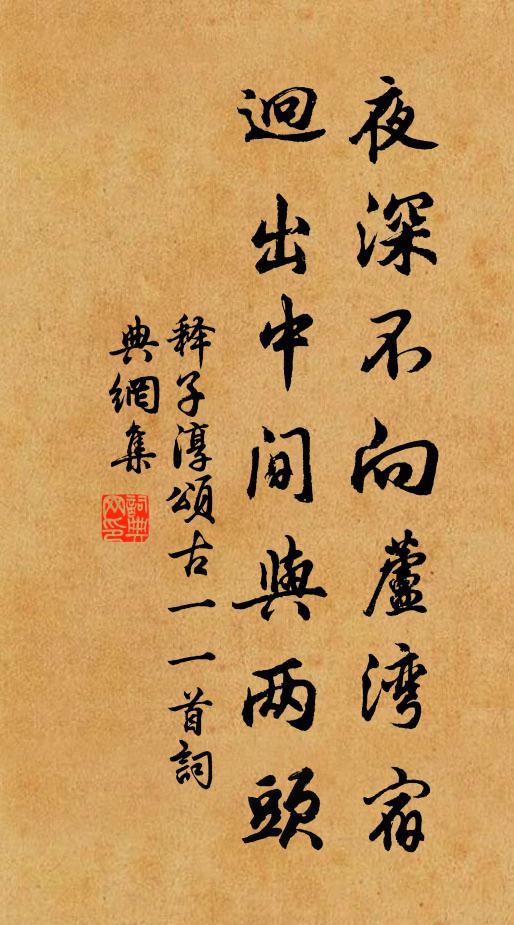 夜深不向蘆湾宿
迥出中間與两頭
释子淳頌古一一首詞
典網集
詞典網印